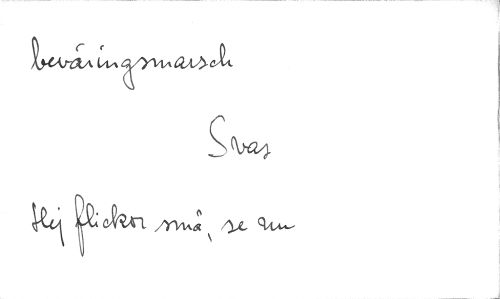 beväringsmarsch
Svas
Hej flickor små, se nu